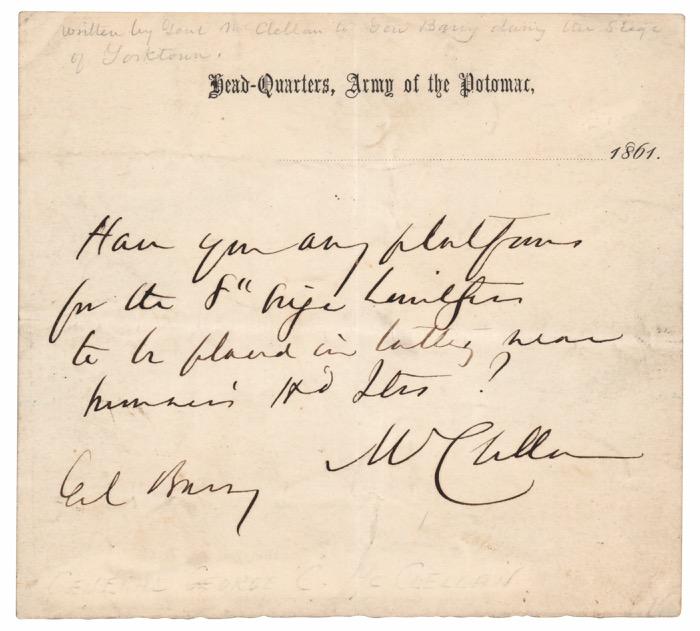 written by Genl McClellan to Gen Barry during the Siege
of Yorktown.
Head-Quarters, Army of the Potomac,
1861.
Have you any platforms
for the 8" siege howitzers
to be placed in battery near
Hd Qtrs ?
McClellan
Col Barry
GENERAL GEORGE C. McCLELLAN